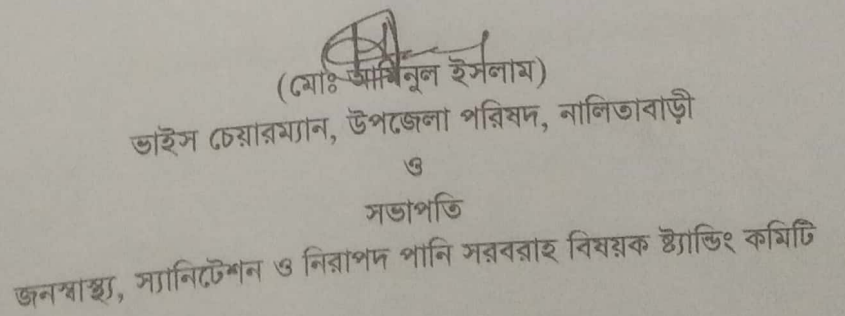 (মোঃ আমিনুল ইসলাম)
ভাইস চেয়ারম্যান, উপজেলা পরিষদ, নালিতাবাড়ী
ও
সভাপতি
জনস্বাস্থ্য, স্যানিটেশন ও নিরাপদ পানি সরবরাহ বিষয়ক ষ্ট্যান্ডিং কমিটি